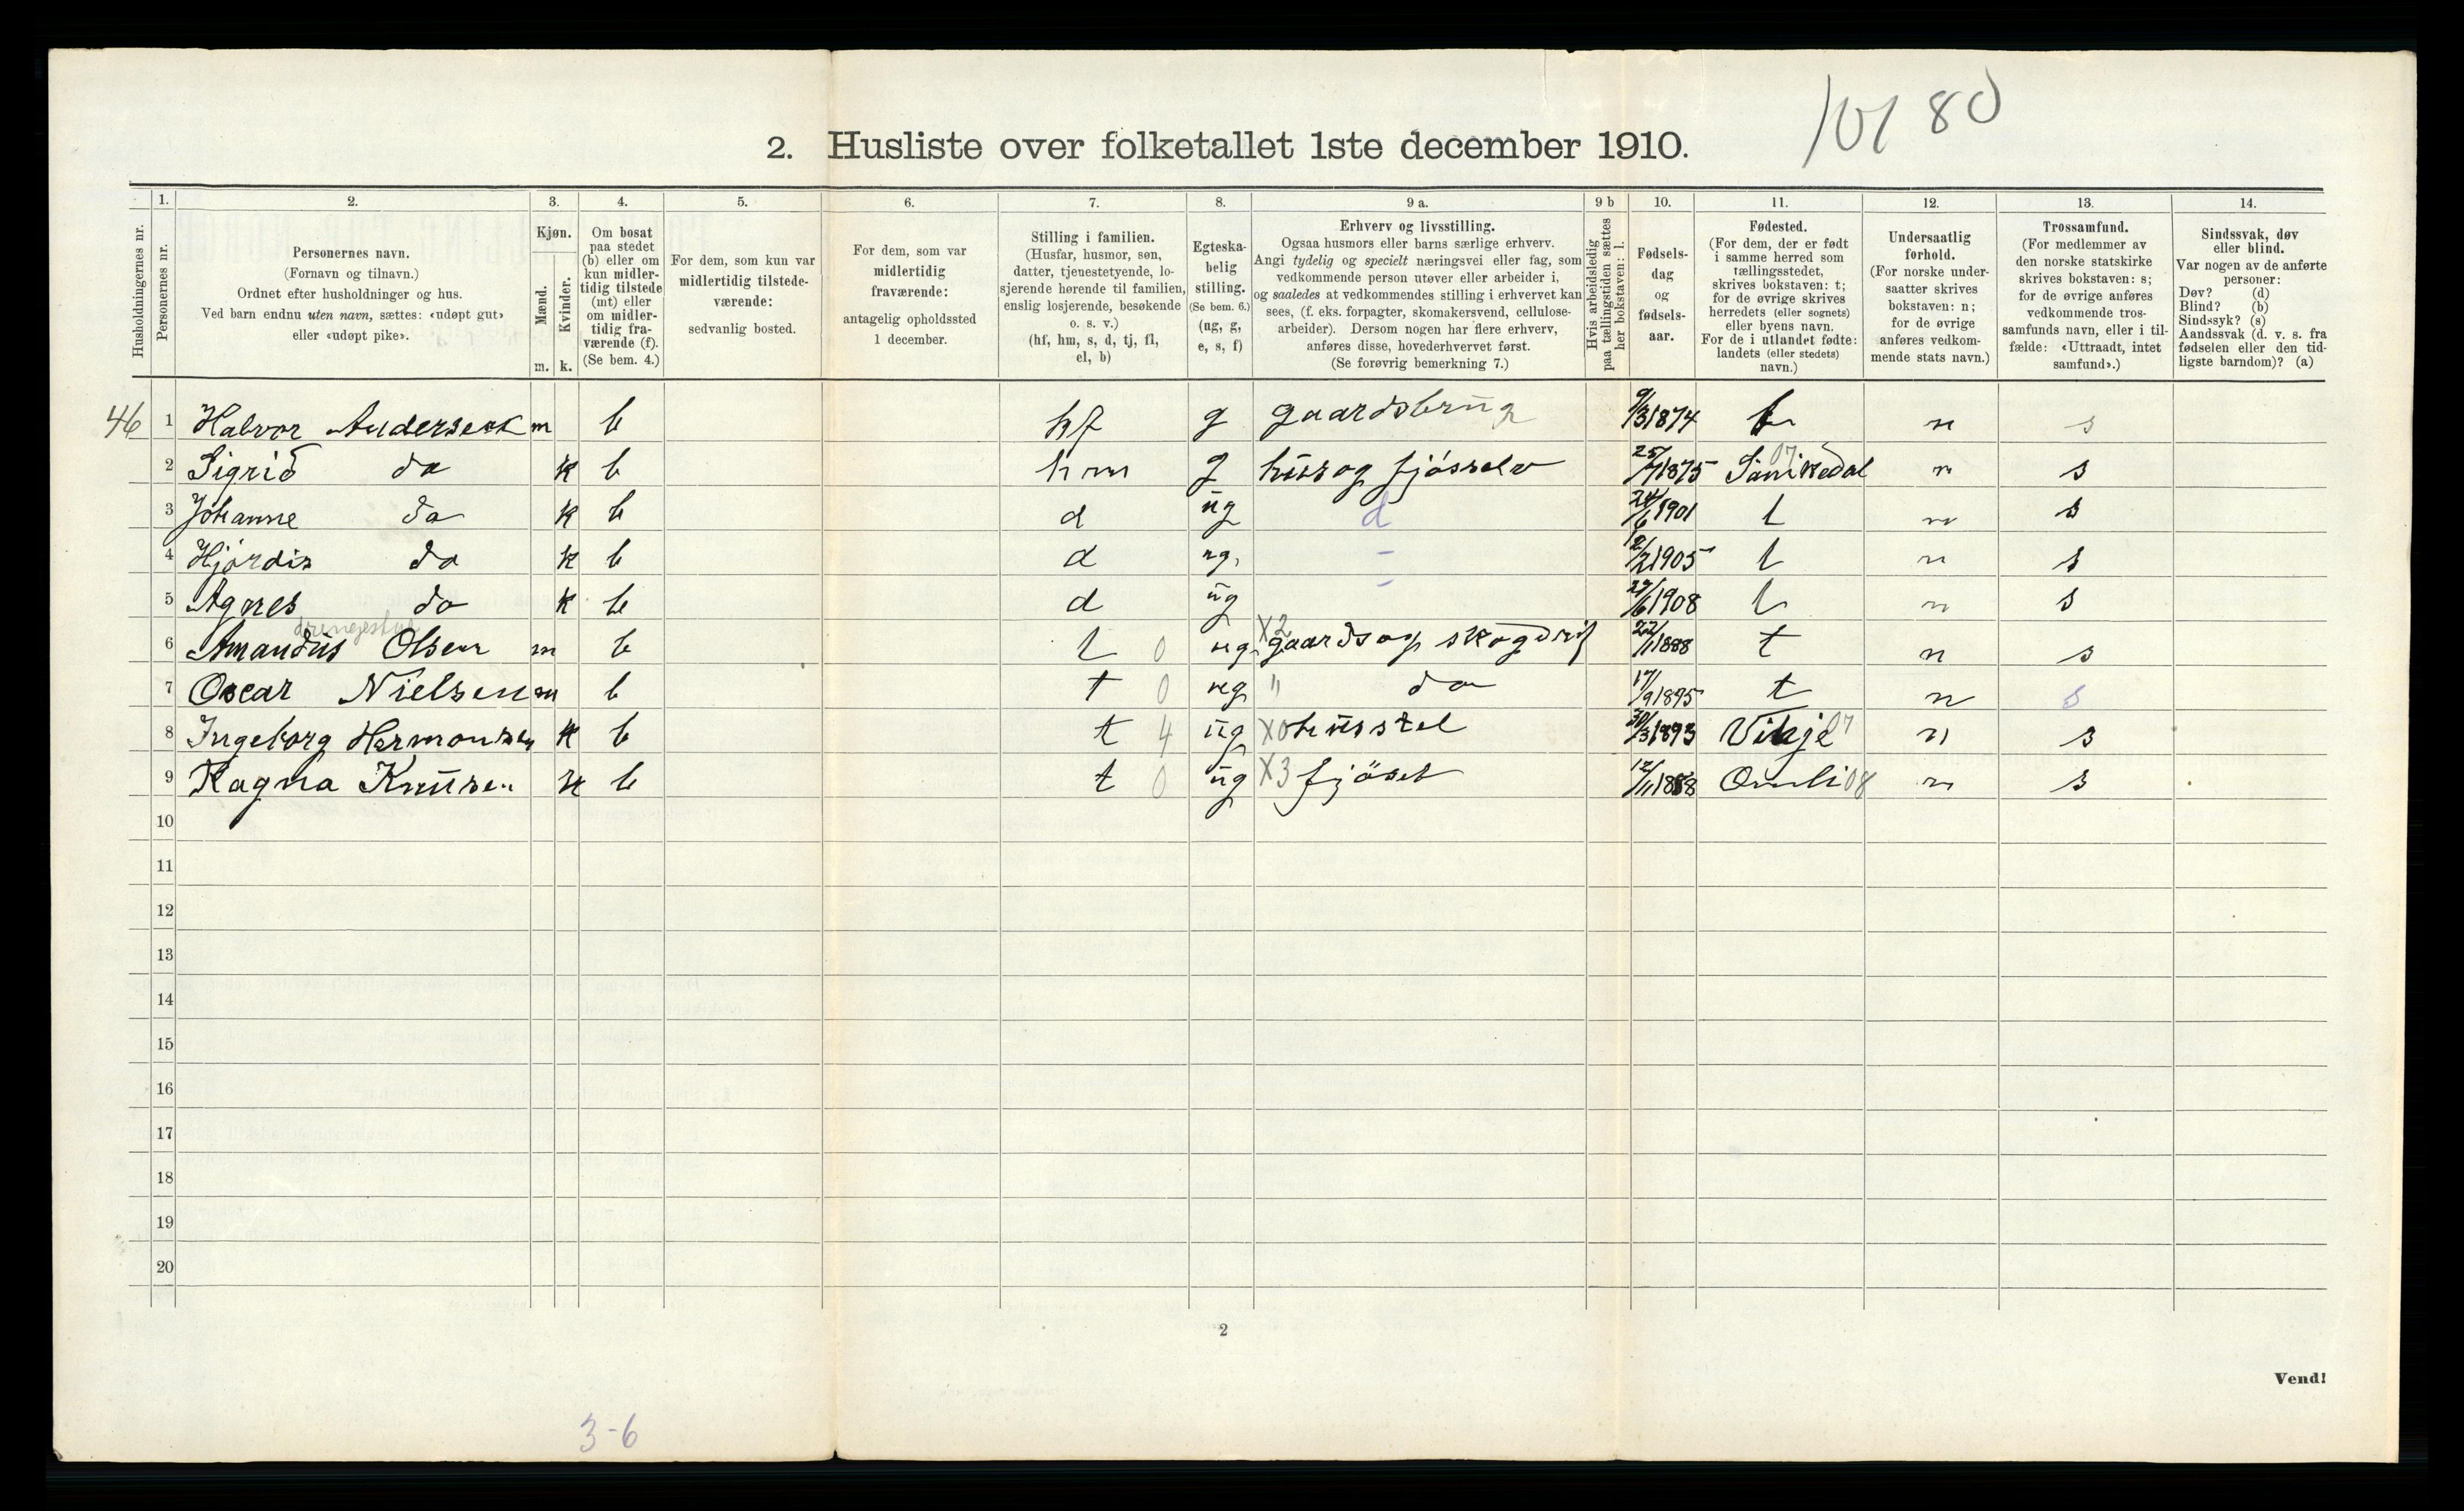 101 80
2. Husliste over folketallet 1ste december 1910.
Husholdningernes nr.
1.
Personernes nr.
2.
Personernes navn.
(Fornavn og tilnavn.)
Ordnet efter husholdninger og hus.
Ved barn endnu uten navn, sættes: «udøpt gut»
eller «udøpt pike».
3.
Kjøn.
Mænd.
Kvinder.
m. k.
4.
Om bosat
paa stedet
(b) eller om
kun midler-
tidig tilstede
(mt) eller
om midler-
tidig fra-
værende (f).
(Se bem. 4.)
5.
For dem, som kun var
midlertidig tilstede-
værende:
sedvanlig bosted.
6.
For dem, som var
midlertidig
fraværende:
antagelig opholdssted
1 december.
7.
Stilling i familien.
(Husfar, husmor, søn,
datter, tjenestetyende, lo-
sjerende hørende til familien,
enslig losjerende, besøkende
o. s. v.)
(hf, hm, s, d, tj, fl,
el, b)
8.
Egteska-
belig
stilling.
(Se bem. 6.)
(ug, g,
e, s, f)
9 a.
Erhverv og livsstilling.
Ogsaa husmors eller barns særlige erhverv.
Angi tydelig og specielt næringsvei eller fag, som
vedkommende person utøver eller arbeider i,
og saaledes at vedkommendes stilling i erhvervet kan
sees, (f. eks. forpagter, skomakersvend, cellulose-
arbeider). Dersom nogen har flere erhverv,
anføres disse, hovederhvervet først.
(Se forøvrig bemerkning 7.)
9 b
Hvis arbeidsledig
paa tællingstiden sættes
her bokstaven: l.
10.
Fødsels-
dag
og
fødsels-
aar.
11.
Fødested.
(For dem, der er født
i samme herred som
tællingsstedet,
skrives bokstaven: t;
for de øvrige skrives
herredets (eller sognets)
eller byens navn.
For de i utlandet fødte:
landets (eller stedets)
navn.)
12.
Undersaatlig
forhold.
(For norske under-
saatter skrives
bokstaven: n;
for de øvrige
anføres vedkom-
mende stats navn.)
13.
Trossamfund.
(For medlemmer av
den norske statskirke
skrives bokstaven: s;
for de øvrige anføres
vedkommende tros-
samfunds navn, eller i til-
fælde: «Uttraadt, intet
samfund».)
14.
Sindssvak, døv
eller blind.
Var nogen av de anførte
personer:
Døv? (d)
Blind? (b)
Sindssyk? (s)
Aandssvak (d. v. s. fra
fødselen eller den tid-
ligste barndom)? (a)
46 1 Halvor Andersen m b hf g gaardsbrug 9/3 1874 t n s
2 Sigrid do k b hm g hus og fjøsselv 25/ 1875 07 n s
3 Johanne do k b d ug d 24/6 1901 t n s
4 Hjørdis do k b d ug. - 12/2 1905 t n s
5 Agnes do k b d ug - 1908 t n s
drengestue
6 Amandus Olsen m b t 0 ug X2 gaards og skogdrif 22/1 1888 t n s
7 Oscar Nielsen m b t 0 ug " do 17/9 1895 t n s
8 Ingeborg Hermonsen k b t 4 ug X0 husstel 30/3 1893 Vinje 07 n s
9 Ragna Knusen k b t 0 ug X3 fjøset 12/11 1888 Omli 08 n s
10
11
12
13
14
15
16
17
18
19
20
2
Vend!
3-6